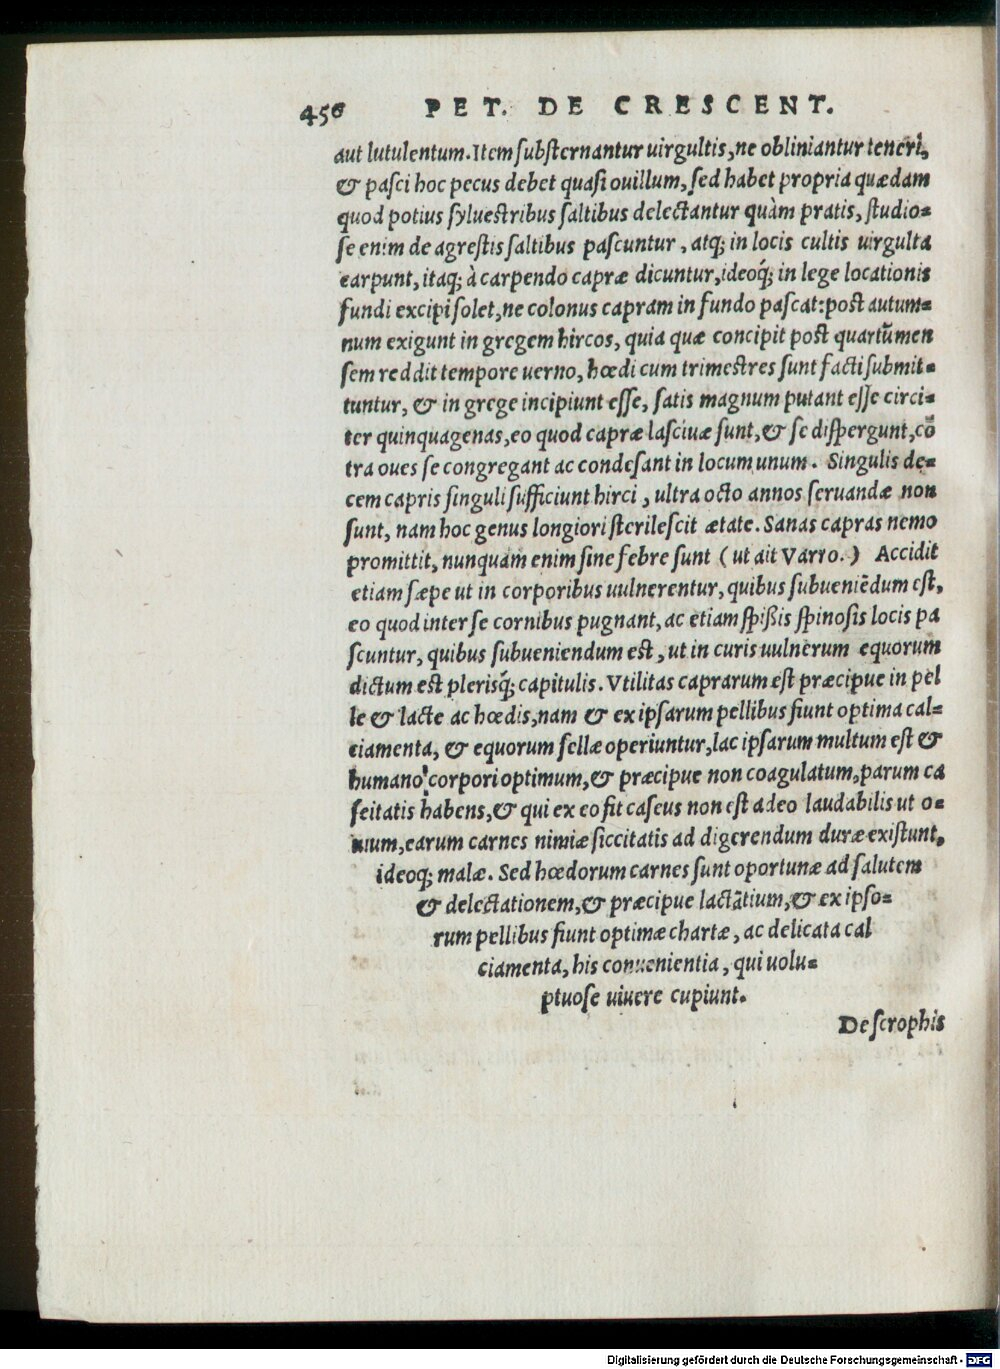 456 PET. DE CRESCENT.
aut lutulentum. Item substernantur uirgultis, ne obliniantur teneri,
& pasci hoc pecus debet quasi ouillum, sed habet propria quædam
quod potius syluestribus saltibus delectantur quàm pratis, studio-
se enim de agrestis saltibus pascuntur, atq; in locis cultis uirgulta
carpunt, itaq; à carpendo capræ dicuntur, ideoq́; in lege locationis
fundi excipi solet, ne colonus capram in fundo pascat: post autum-
num exigunt in gregem hircos, quia quæ concipit post quartũ men
sem reddit tempore uerno, hœdi cum trimestres sunt facti submit-
tuntur, & in grege incipiunt esse, satis magnum putant esse circi-
ter quinquagenas, eo quod capræ lasciuæ sunt, & se dispergunt, cō
tra oues se congregant ac condesant in locum unum. Singulis de-
cem capris singuli sufficiunt hirci, ultra octo annos seruandæ non
sunt, nam hoc genus longiori sterilescit ætate. Sanas capras nemo
promittit, nunquam enim sine febre sunt (ut ait Varro.) Accidit
etiam sæpe ut in corporibus uulnerentur, quibus subueniēdum est,
eo quod inter se cornibus pugnant, ac etiam spißis spinosis locis pa
scuntur, quibus subueniendum est, ut in curis uulnerum equorum
dictum est plerisq́; capitulis. Vtilitas caprarum est præcipue in pel
le & lacte ac hœdis, nam & ex ipsarum pellibus fiunt optima cal-
ciamenta, & equorum sellæ operiuntur, lac ipsarum multum est &
humano corpori optimum, & præcipue non coagulatum, parum ca
seitatis habens, & qui ex eo fit caseus non est adeo laudabilis ut o-
uium, earum carnes nimiæ siccitatis ad digerendum duræ existunt,
ideoq; malæ. Sed hœdorum carnes sunt oportunæ ad salutem
& delectationem, & præcipue lactãtium, & ex ipso-
rum pellibus fiunt optimæ chartæ, ac delicata cal
ciamenta, his conuenientia, qui uolu-
ptuose uiuere cupiunt.
De scrophis
Digitalisierung gefördert durch die Deutsche Forschungsgemeinschaft - DFG